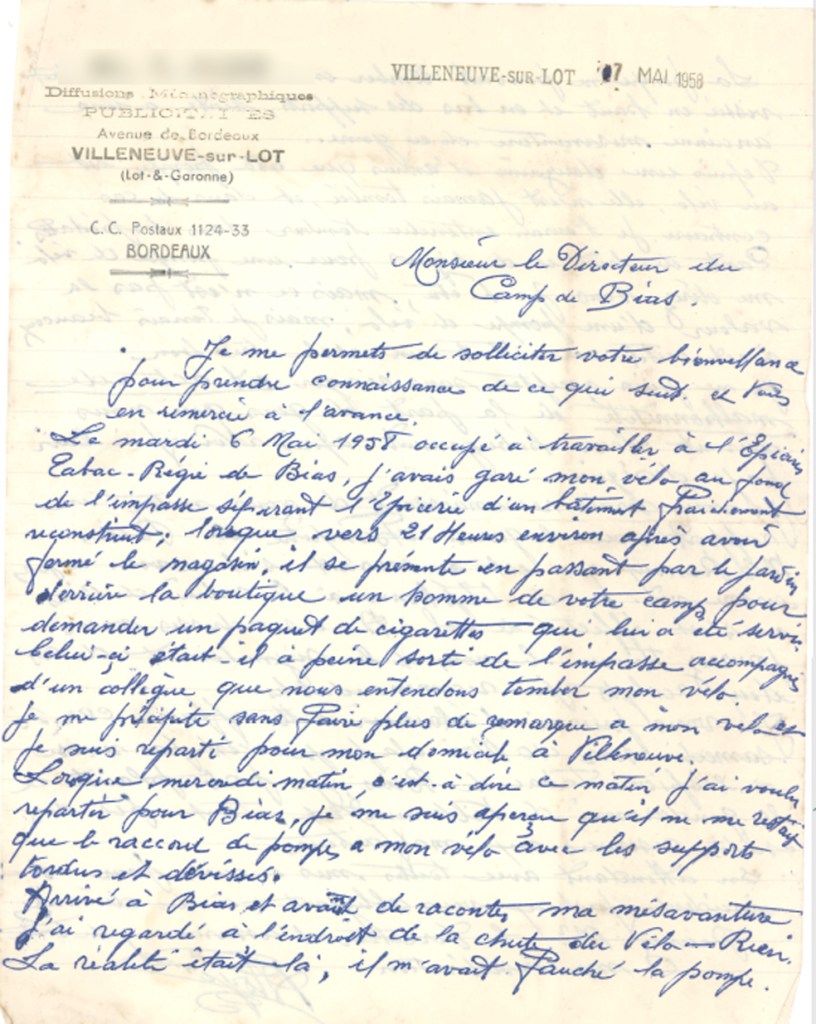 Diffusions Mécanographiques
PUBLICITAIRES
Avenue de Bordeaux
VILLENEUVE-sur-LOT
(Lot-&-Garonne)
C. C. Postaux 1124-33
BORDEAUX
VILLENEUVE-SUR-LOT 07 MAI 1958
Monsieur le Directeur du
Camp de Bias.
Je me permets de solliciter votre bienveillance
pour prendre connaissance de ce qui suit et Vous
en remercie à l'avance.
Le mardi 6 Mai 1958 occupé à travailler à l'Epicerie
Tabac-Régie de Bias, j'avais garé mon vélo au fond
de l'impasse séparant l'Epicerie d'un bâtiment fraîchement
reconstruit; lorsque vers 21 Heures environ après avoir
fermé le magasin, il se présente en passant par le jardin
derrière la boutique un homme de votre camp pour
demander un paquet de cigarettes qui lui a été servi.
Celui-ci était-il à peine sorti de l'impasse accompagné
d'un collègue que nous entendons tomber mon vélo.
Je me précipite sans faire plus de remarque a mon vélo et
je suis reparti pour mon domicile à Villeneuve.
Lorsque mercredi matin, c'est à dire ce matin j'ai voulu
repartir pour Bias, je me suis aperçu qu'il ne me restait
que le raccord de pompe a mon vélo avec les supports
tordus et dévissés.
Arrivé à Bias et avant de raconter ma mésaventure
j'ai regardé à l'endroit de la chute du Vélo - Rien.
La réalité était là, il m'avait fauché la pompe.